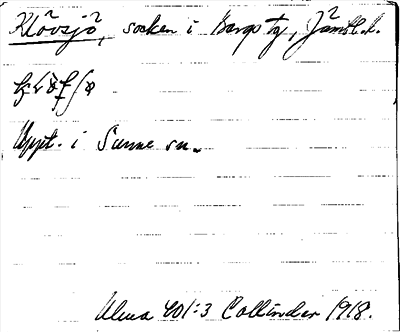 Klövsjö, socken i Bergs tg, Jämtl.l.
Uppt. i Sunne sn.
Ulma 401:3 Collinder 1918.